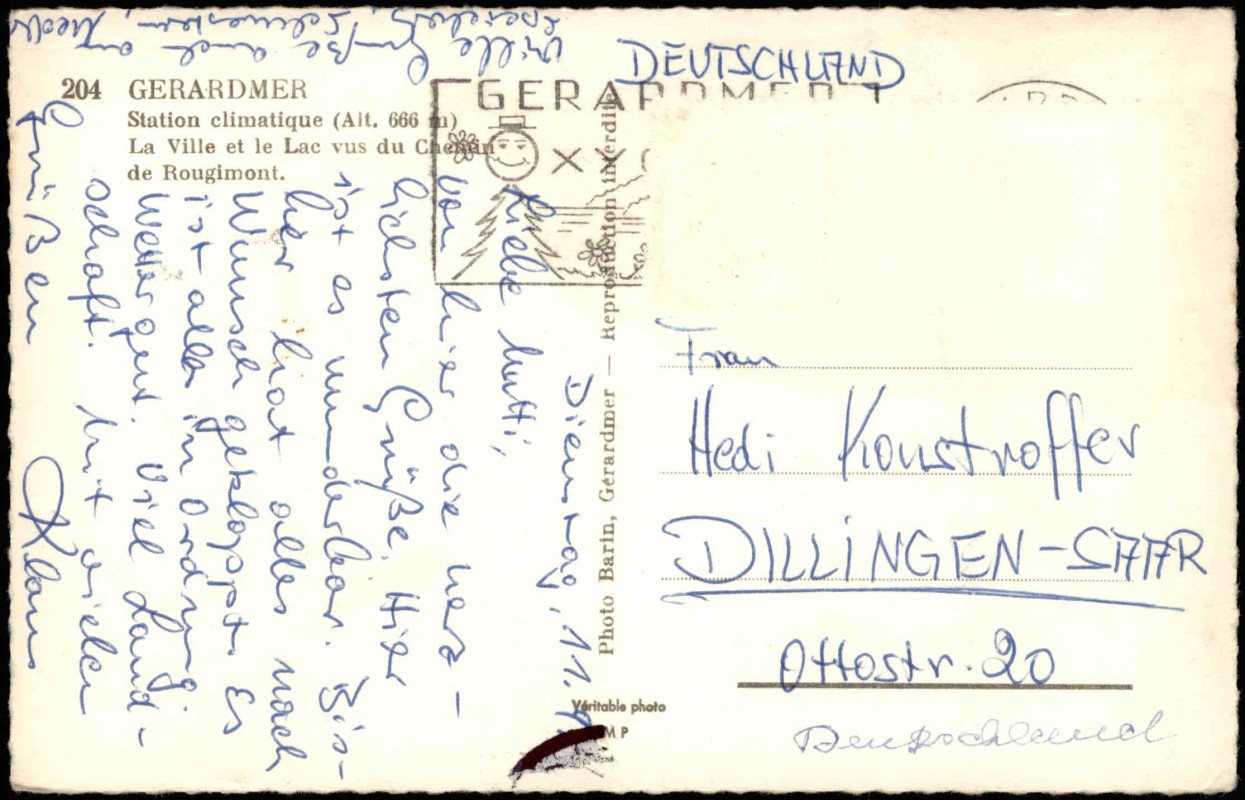 204 GERARDMER
Station climatique (Alt. 666 m)
La Ville et le Lac vus du Chemin
de Rougimont.
GERARDMER
Photo Barin, Gérardmer — Reproduction interdite
Véritable photo
Dienstag, 11.
Liebe Mutti,
von hier die herz-
lichsten Grüße. Hier
ist es wunderbar. Bis-
her hat alles nach
Wunsch geklappt. Es
ist alles in Ordnung.
Wetter gut. Viel Land-
schaft. Mit vielen
Grüßen Klaus
Viele Grüße auch an
Schwestern,
DEUTSCHLAND
Frau
Hedi Konstroffer
DILLINGEN-SAAR
Ottostr. 20
Deutschland